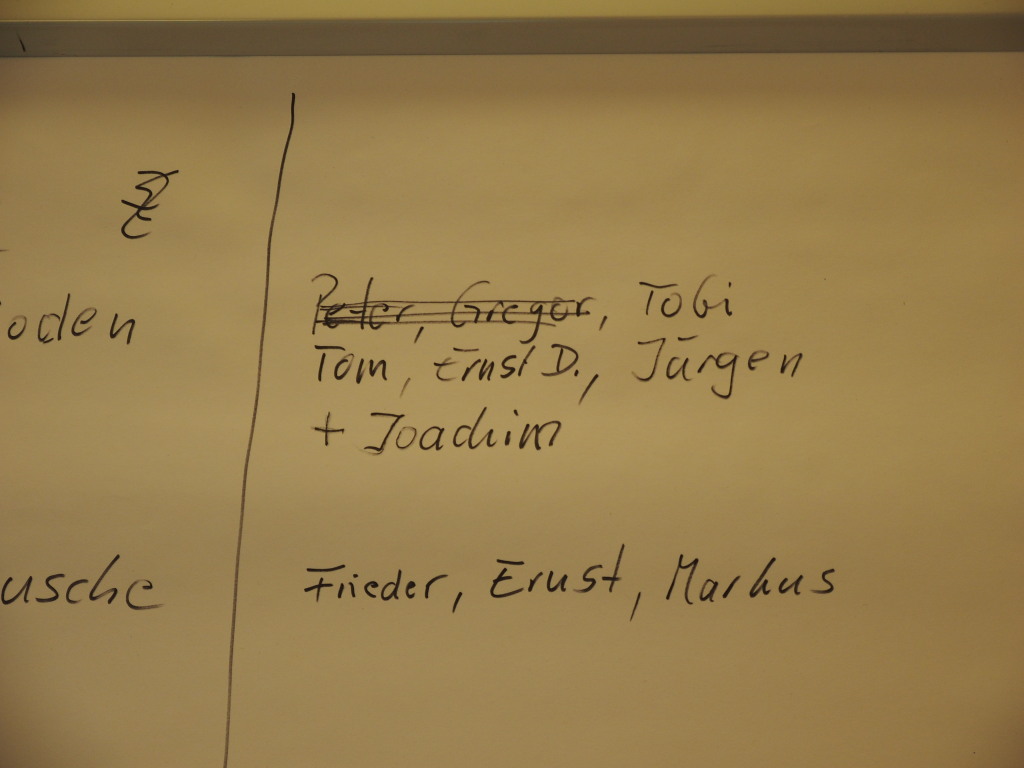 oden
Peter, Gregor, Tobi
Tom, Ernst D., Jürgen
+ Joachim
usche
Frieder, Ernst, Markus